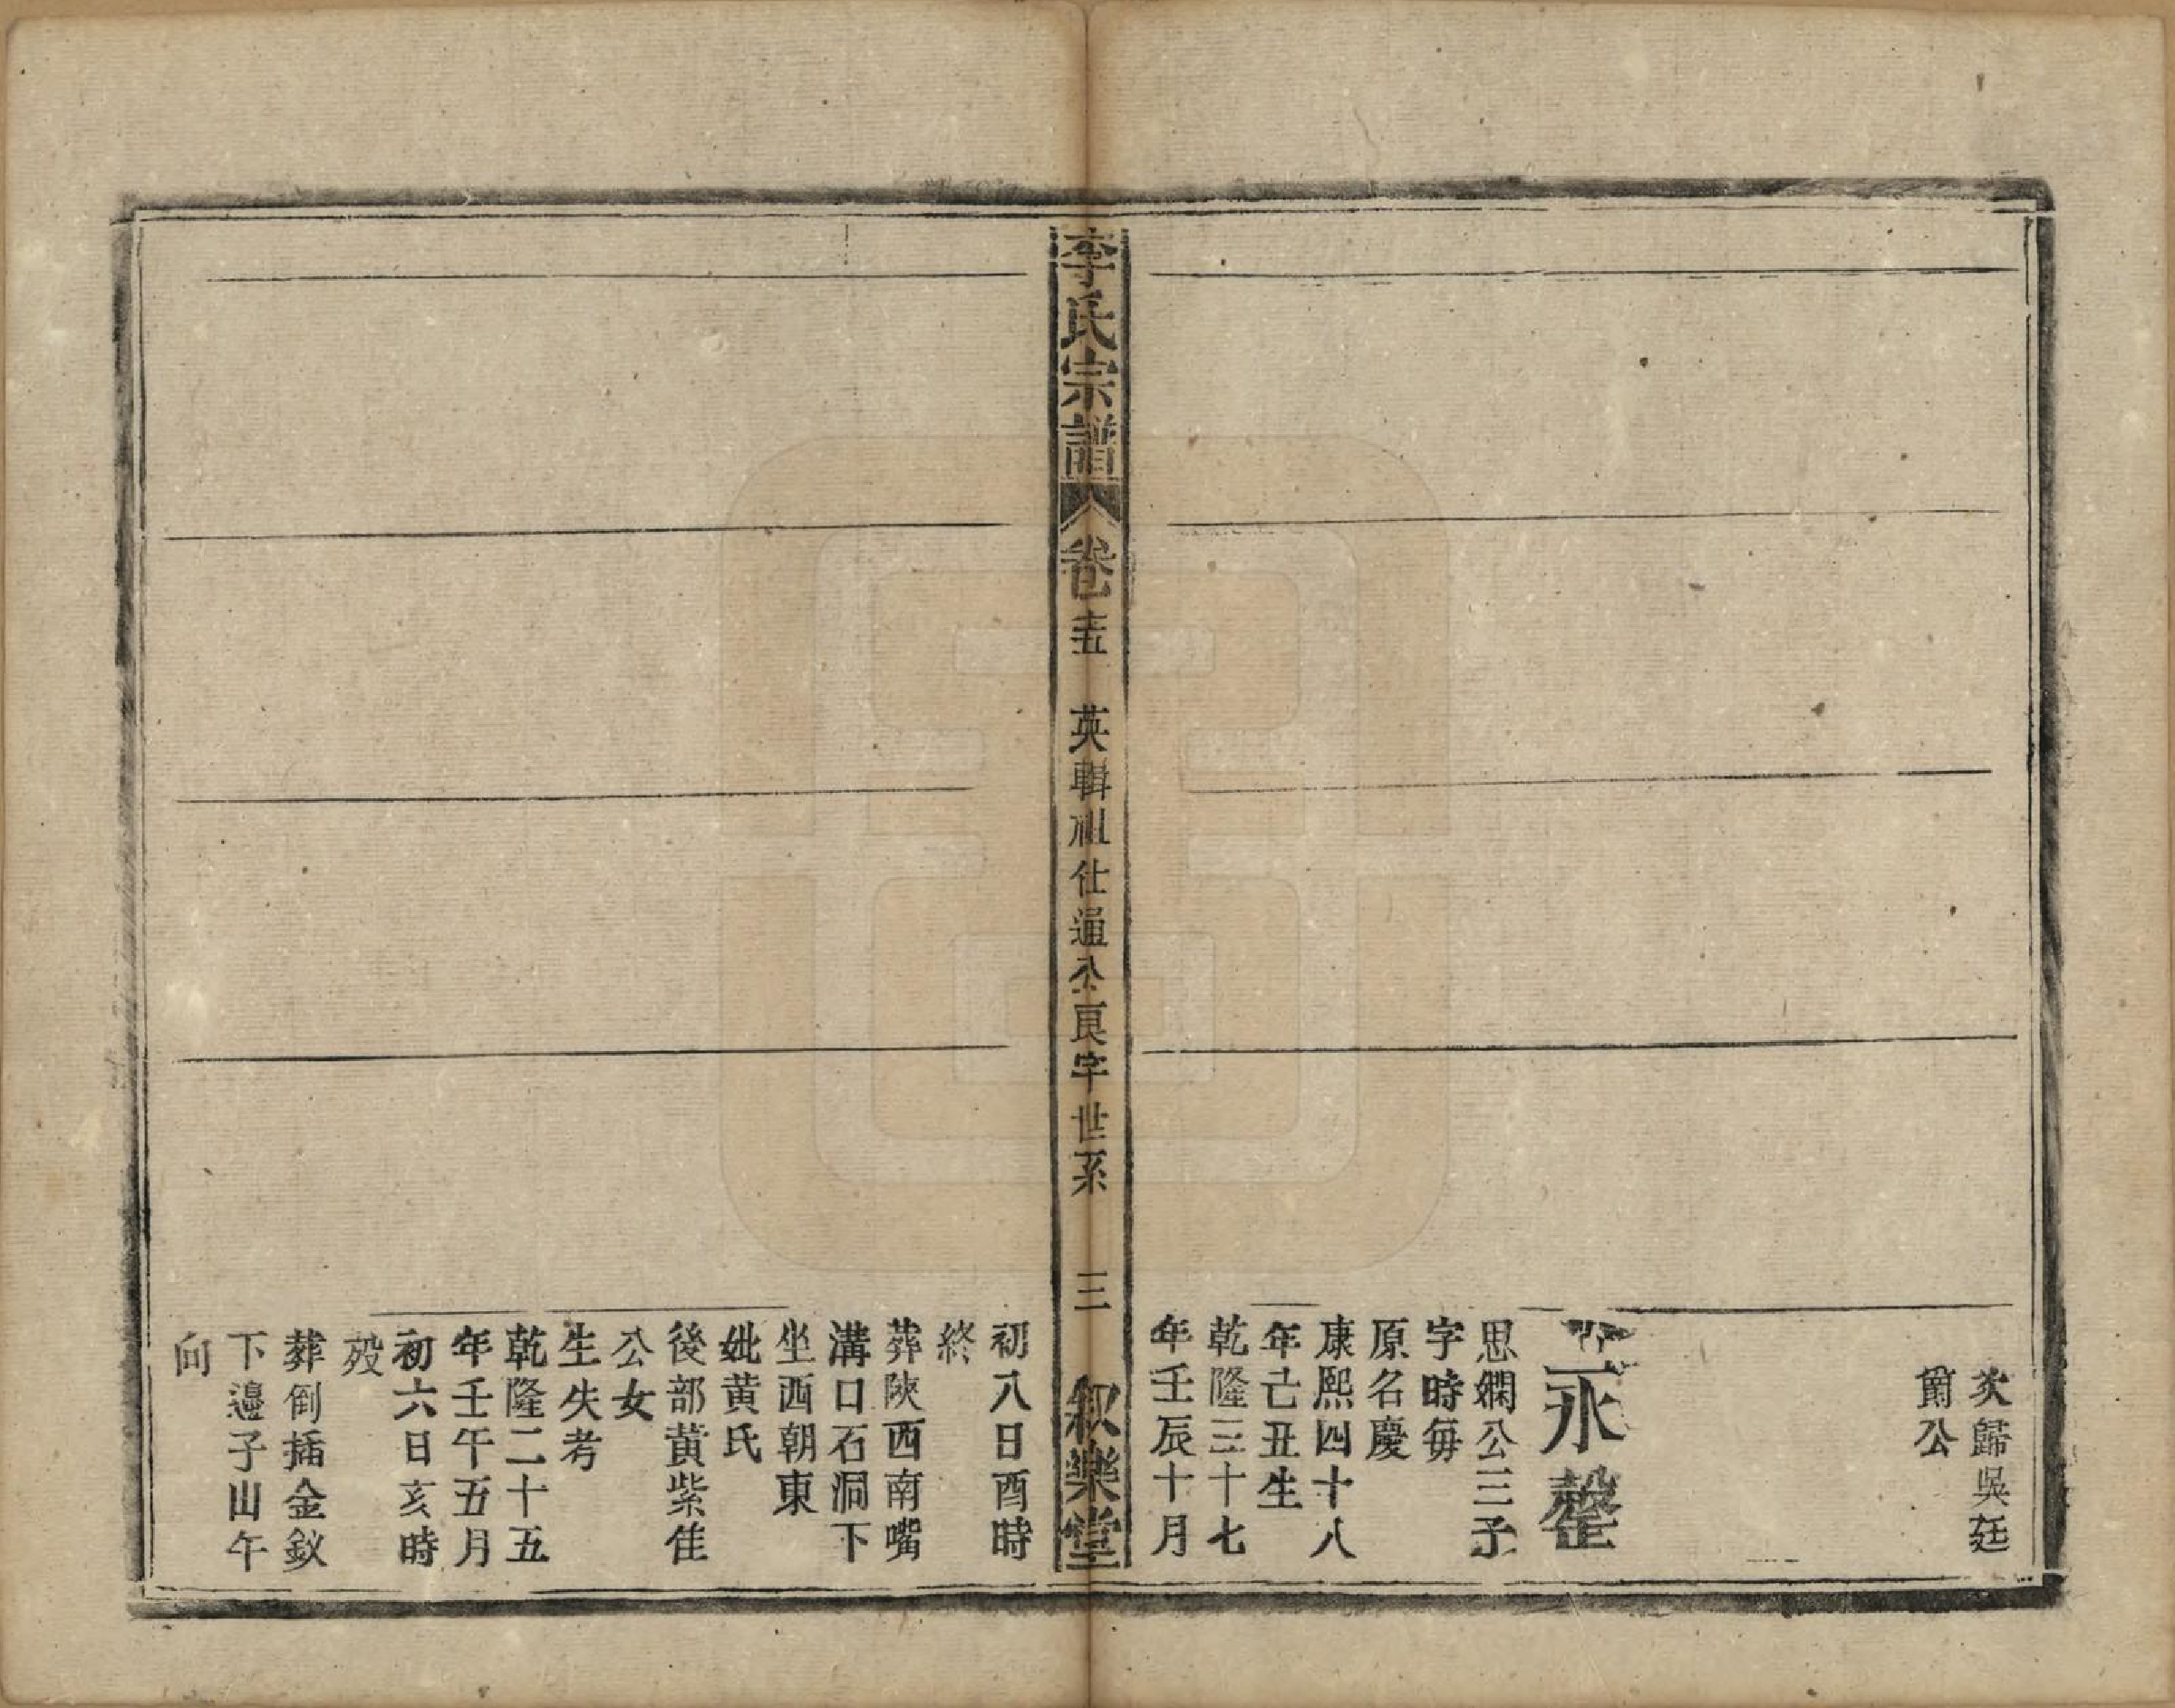 次歸吳廷
爾公
永罄
思嫻公三子
字時每
原名慶
康熙四十八
年己丑生
乾隆三十七
年壬辰十月
李氏宗譜
卷十五
英輯祖仕通公良字世系
三
叙樂堂
初八日酉時
終
葬陝西南嘴
溝口石洞下
坐西朝東
妣黄氏
後部黄紫隹
公女
生失考
乾隆二十五
年壬午五月
初六日亥時
歿
葬倒插金釵
下邊子山午
向